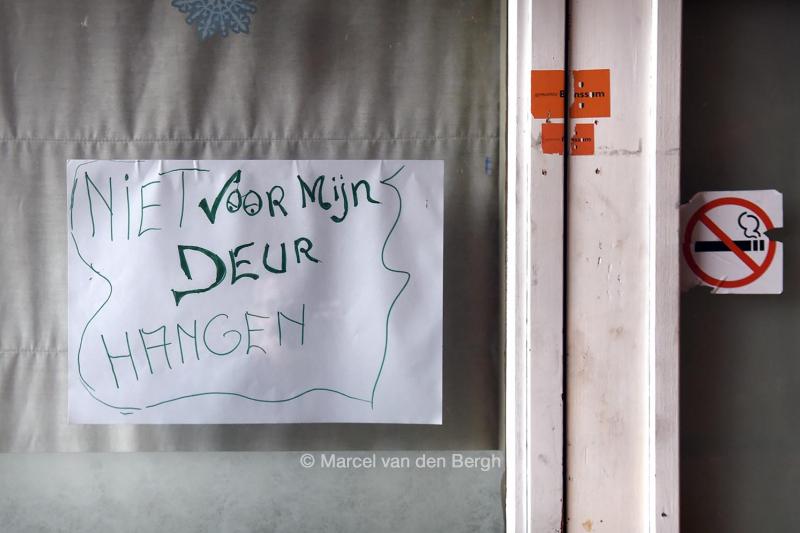 NIET VOOR Mijn
DEUR
HANGEN
gemeente Brunssum
© Marcel van den Bergh